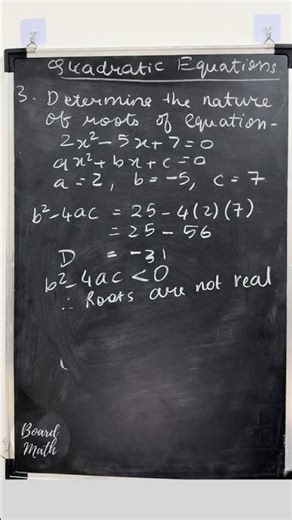 Quadratic Equations
3. Determine the nature
of roots of equation-
2x²-5x+7=0
ax²+bx+c=0
a=2, b=-5, c=7
b²-4ac = 25-4(2)(7)
= 25-56
D = -31
b²-4ac<0
∴ Roots are not real
Board
Math